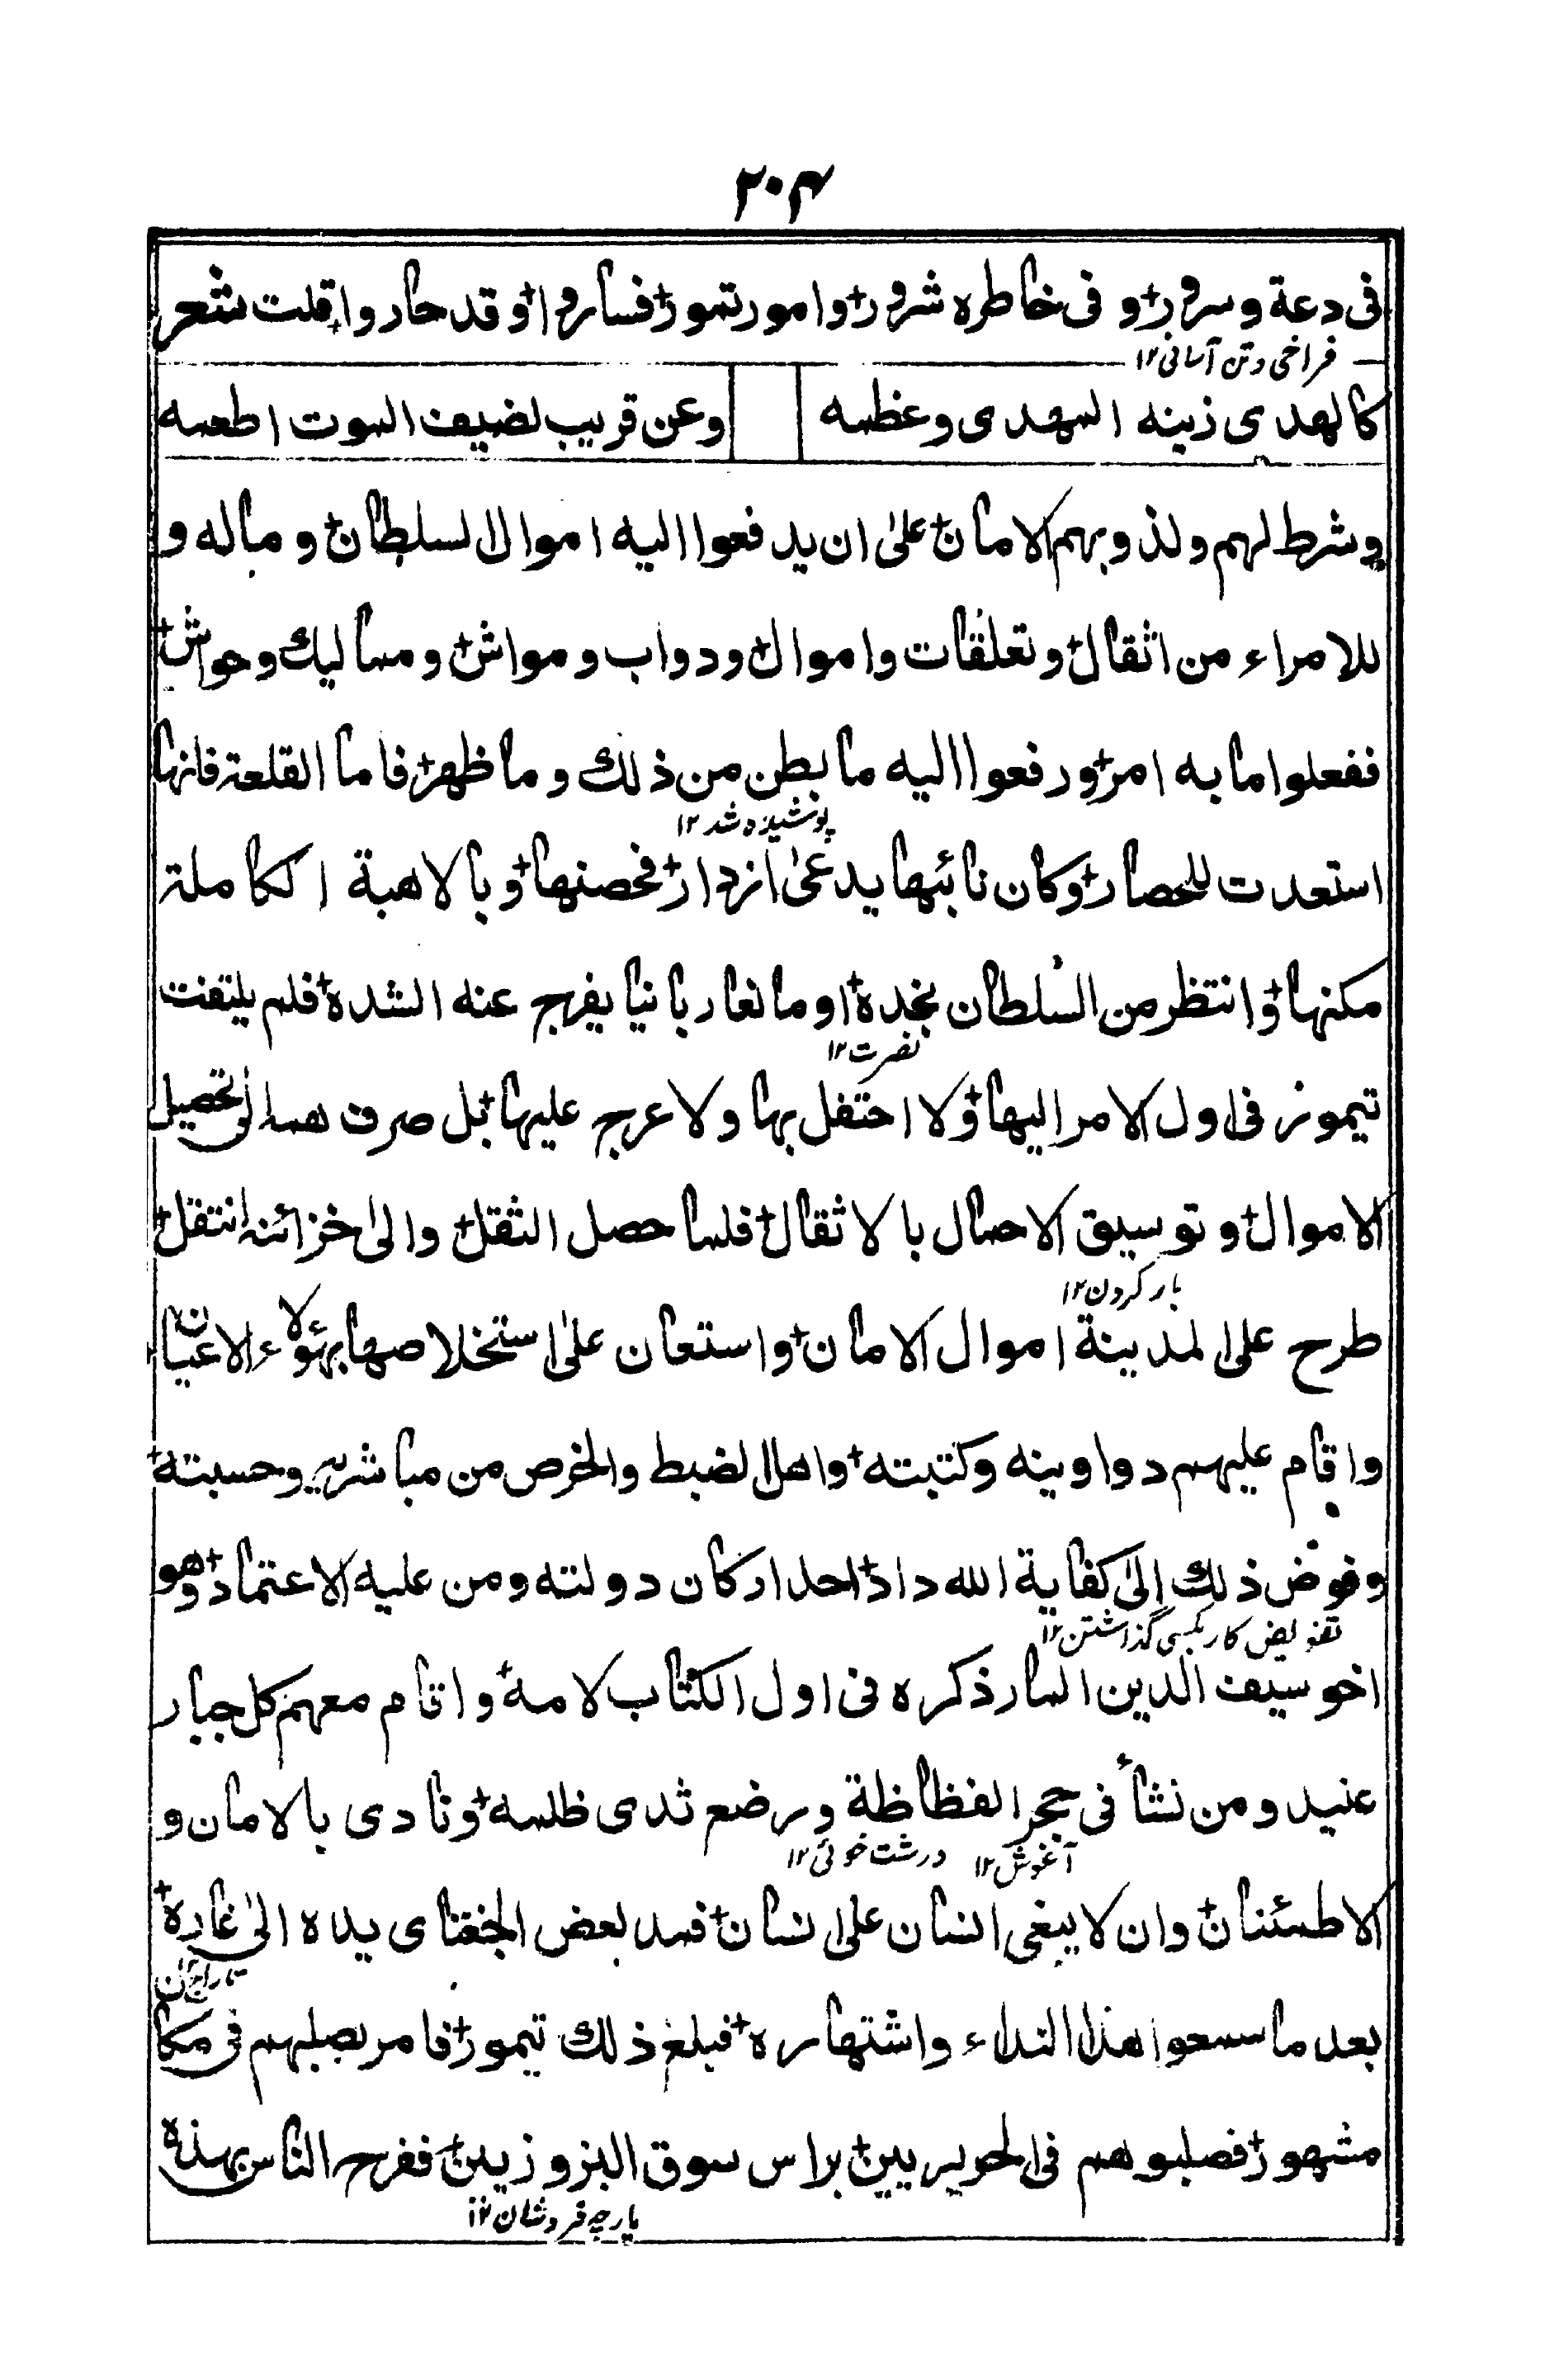 ۲۰۴
فى دعة وسرور + و فى خاطره شرور + وامور تمور + فساروا + وقد حاروا + قلت شعر
فراخى وتن آسانى ۱۲
كالهدى زينه المهدى وعظمه
وعن قريب لضيف الموت اطعمه
وشرط لهم ولذويهم الامان + على ان يدفعوا اليه اموال السلطان + و ماله و
للامراء من اثقال + وتعلقات واموال + ودواب ومواش + ومماليك وحواش +
ففعلوا ما به امر + ودفعوا اليه ما بطن من ذلك وما ظهر + فاما القلعة فانها
پوشيده شد ۱۲
استعدت للحصار + وكان نائبها يدعى ازدار + فحصنها + وبالاهبة الكاملة
مكنها + وانتظر من السلطان نجدة + او مانعا ربانيا يفرج عنه الشدة + فلم يلتفت
نصرت ۱۲
تيمور فى اول الامر اليها + ولا احتفل بها ولا عرج عليها + بل صرف همه الى تحصيل
الاموال + وتوسيق الاحمال بالاثقال + فلما حصل الثقل + والى خزائنه انتقل +
بار كردن ۱۲
طرح على المدينة اموال الامان + واستعان على استخلاصها بهؤلاء الاعيان
واقام عليهم دواوينه وكتبته + واهل الضبط والخرص من مباشريه وحسبته +
وفوض ذلك الى كفاية الله داد + احد اركان دولته ومن عليه الاعتماد + وهو
تفويض كار بكسى گذاشتن ۱۲
اخو سيف الدين المار ذكره فى اول الكتاب لامه + واقام معهم كل جبار
عنيد ومن نشأ فى حجر الفظاظة ورضع ثدى ظلمه + ونادى بالامان و
آغوش ۱۲ درشت خوئى ۱۲
الاطمئنان + وان لا يبغى انسان على انسان + فمد بعض الجغتاى يده الى غارة +
تاراج
بعد ما سمعوا هذا النداء واشتهاره + فبلغ ذلك تيمور + فامر بصلبهم فى مكان
مشهور + فصلبوهم فى الحريريين + براس سوق البزوزيين + ففرح الناس بهذه
پارچه فروشان ۱۲